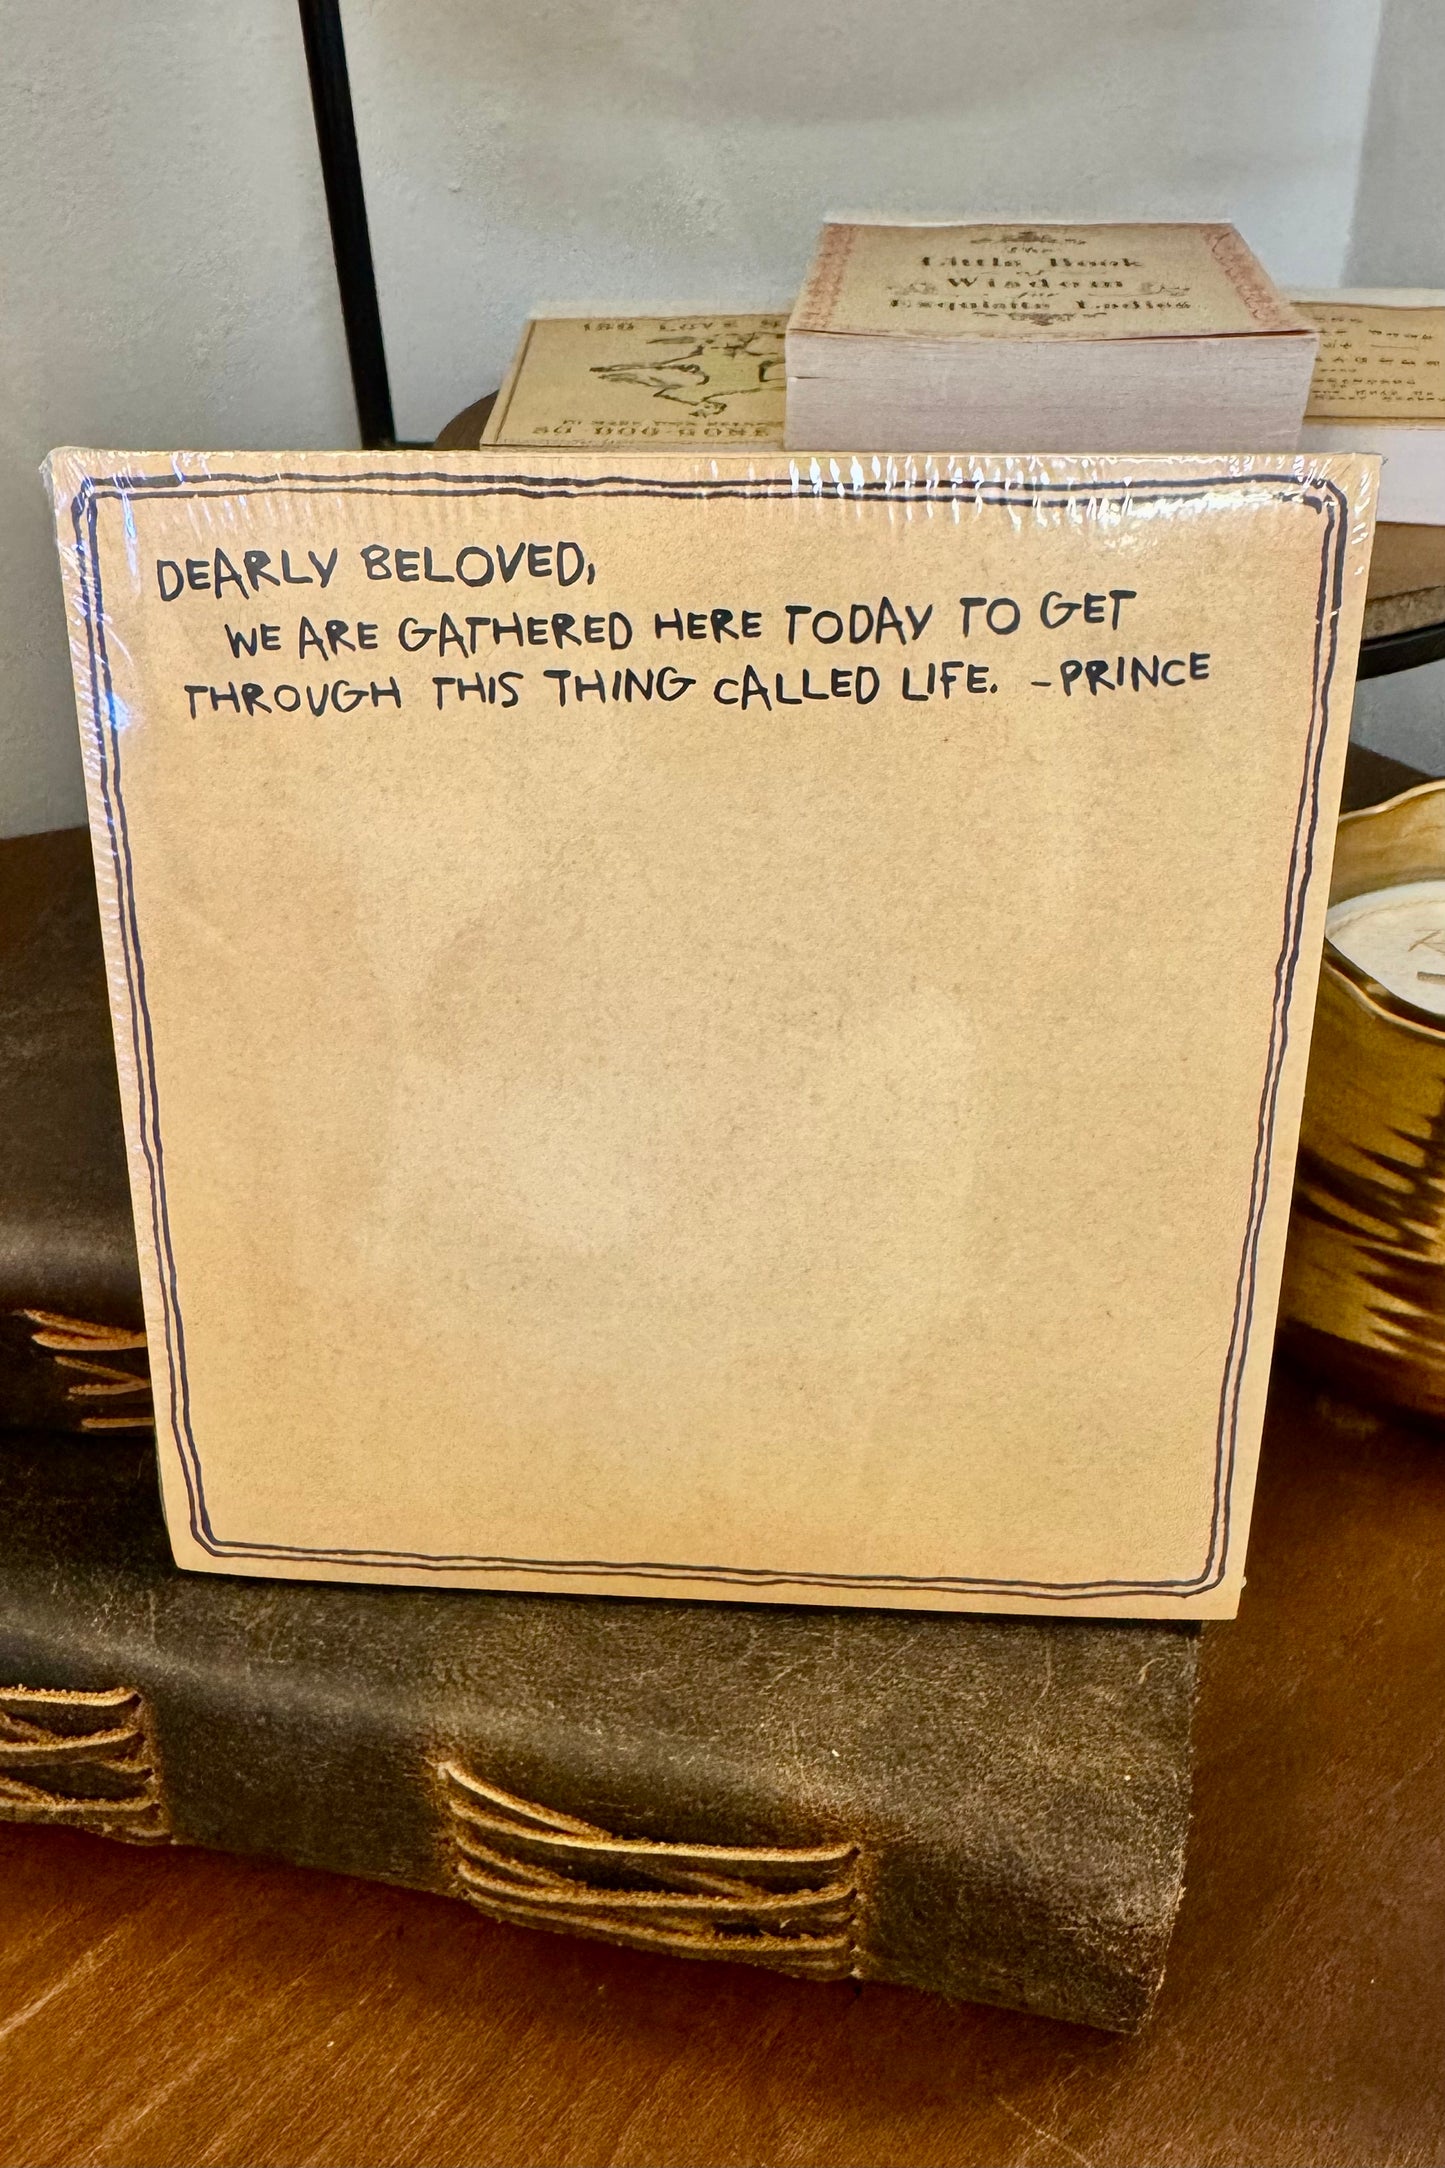 The
Little Book
of
Wisdom
for
Exquisite Ladies
SO DOG-GONE
DEARLY BELOVED,
WE ARE GATHERED HERE TODAY TO GET
THROUGH THIS THING CALLED LIFE. -PRINCE